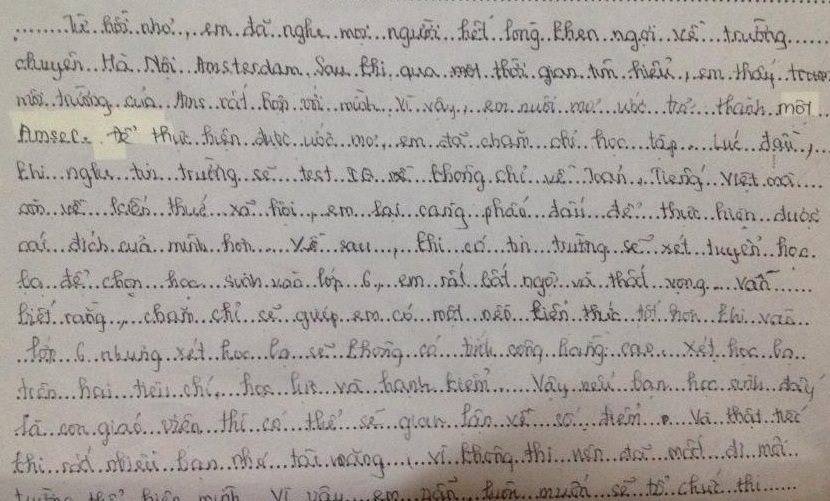 Từ hồi nhỏ, em đã nghe mọi người hết lòng khen ngợi về trường
chuyên Hà Nội Amsterdam. Sau khi qua một thời gian tìm hiểu, em thấy
môi trường của Ams rất hợp với mình. Vì vậy, em nuôi mơ ước trở thành một
Amser. Để thực hiện được ước mơ, em đã chăm chỉ học tập. Lúc đầu,
khi nghe tin trường sẽ test IQ không chỉ về Toán, Tiếng Việt mà
còn về kiến thức xã hội, em lại càng phấn đấu để thực hiện được
cái đích của mình hơn. Về sau, khi có tin trường sẽ xét tuyển học
bạ để chọn học sinh vào lớp 6, em rất bất ngờ và thất vọng. Vẫn
biết rằng, chăm chỉ sẽ giúp em có một nền kiến thức tốt hơn khi vào
lớp 6 nhưng xét học bạ sẽ không có tính công bằng cao. Xét học bạ
trên hai tiêu chí, học lực và hạnh kiểm. Vậy nếu bạn học sinh đấy
là con giáo viên thì có thể sẽ gian lận về số điểm. Và thật tiếc
khi rất nhiều bạn nhỏ tài năng, vì không thi nên đã mất đi môi
trường thể hiện mình. Vì vậy em vẫn luôn muốn sẽ tổ chức thi